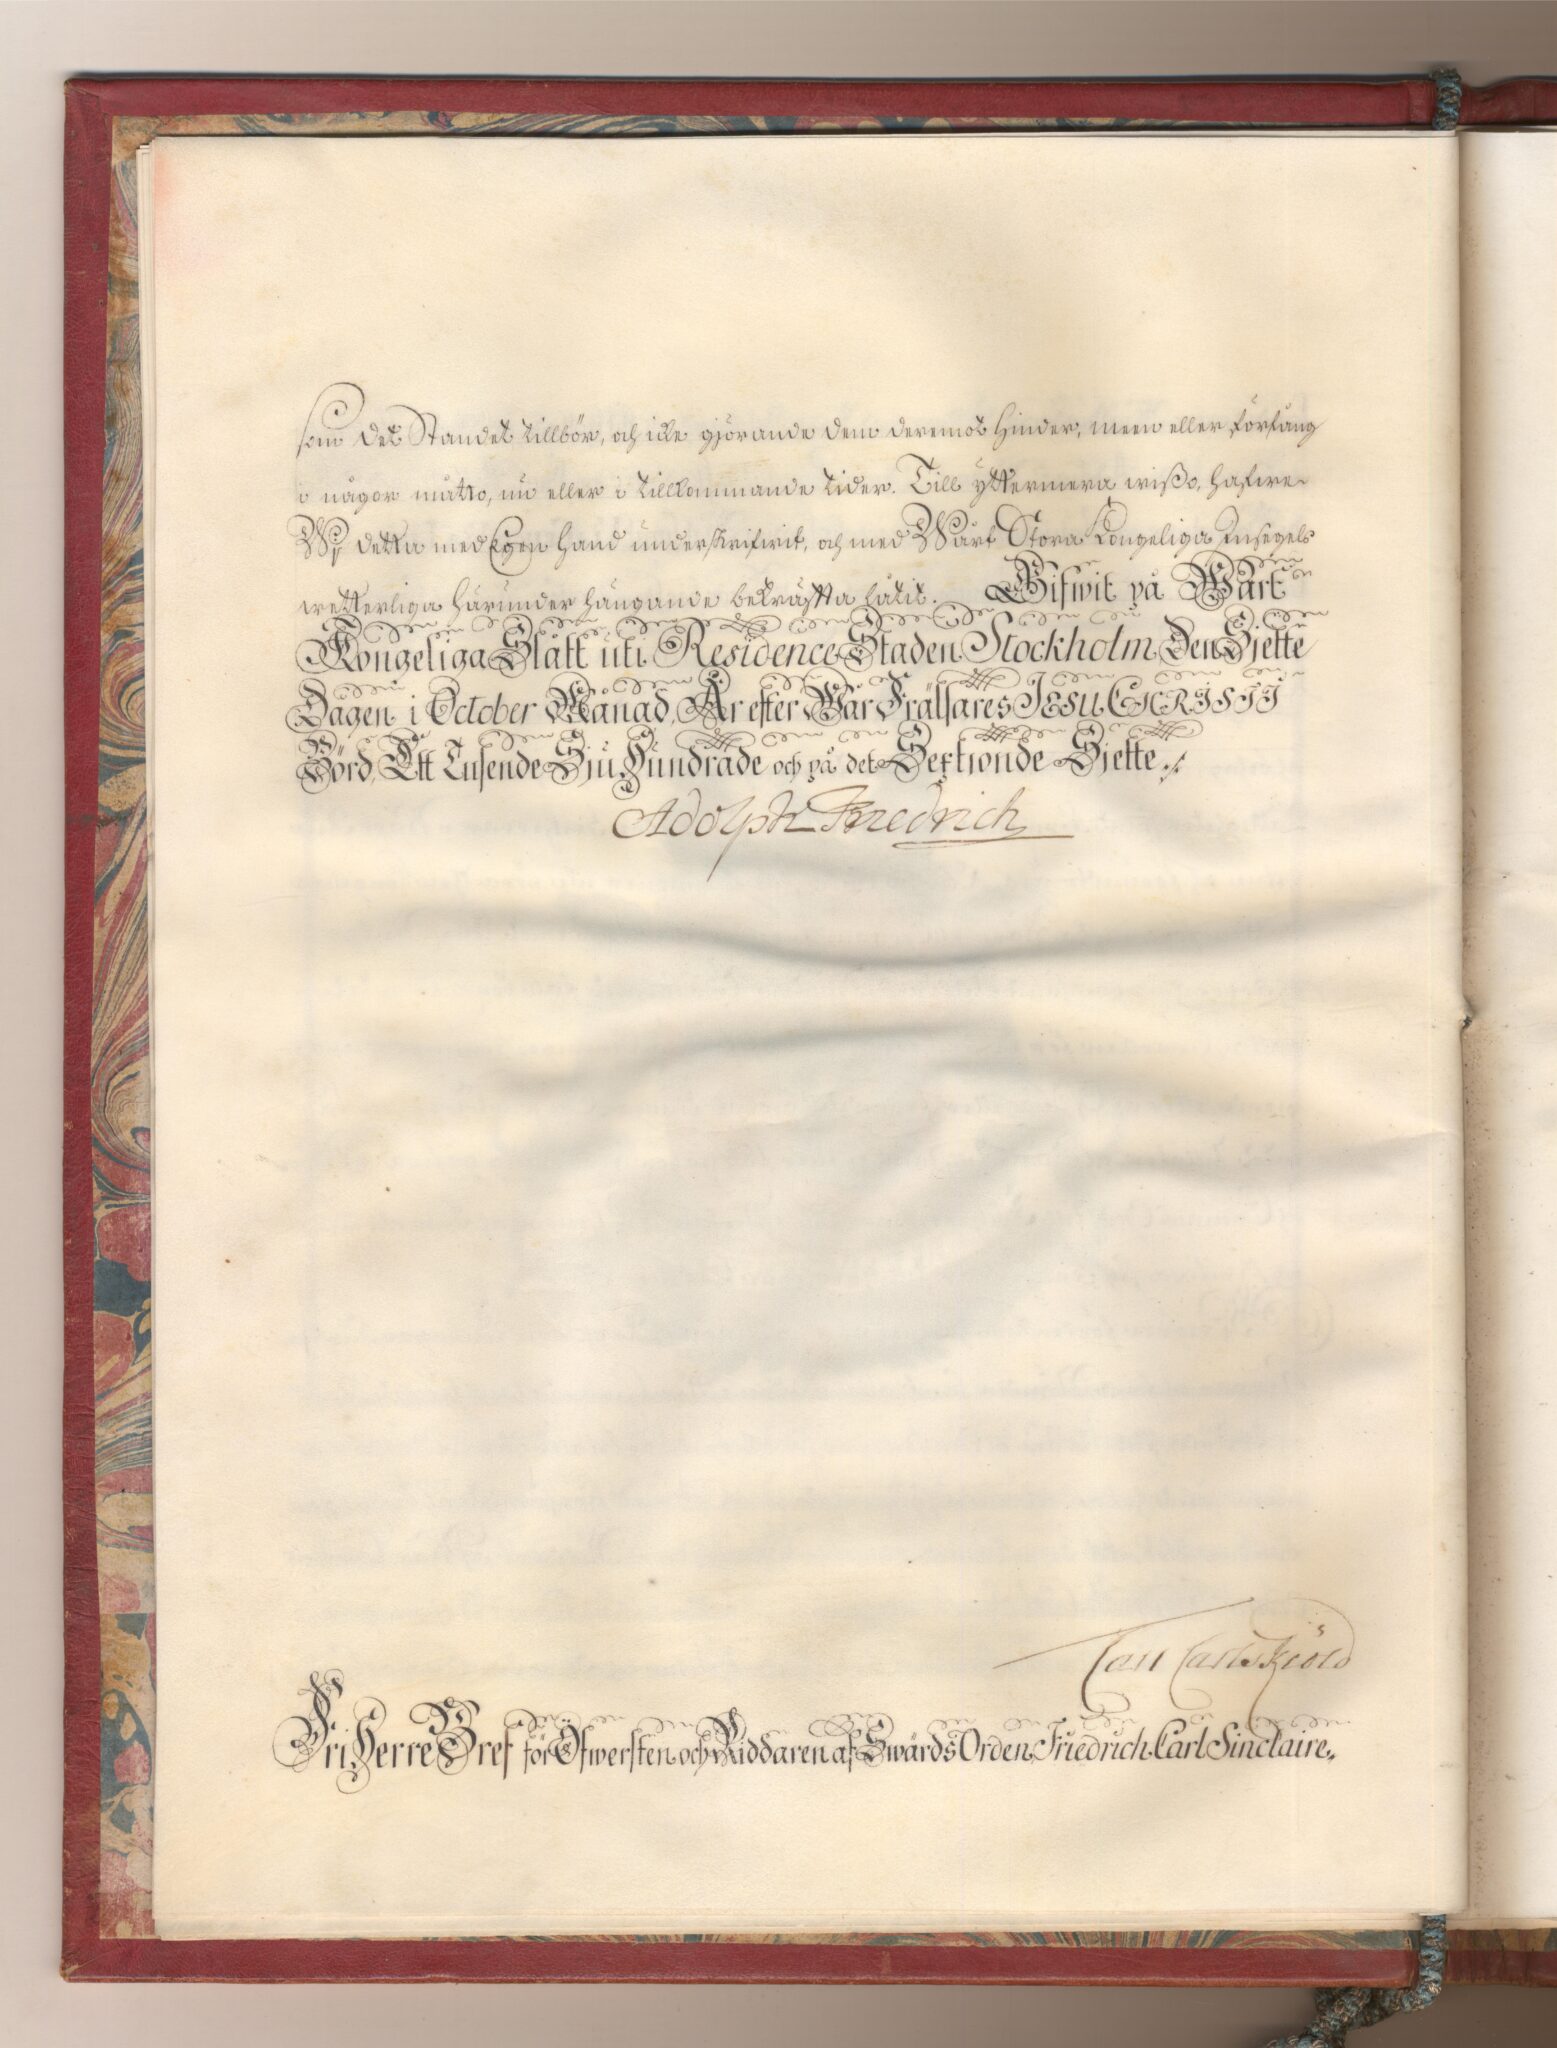 som det Ståndet tillbör, och icke giörande dem deremot hinder, meen eller förfång
i någor måtto, nu eller i tillkommande tider. Till yttermera wißo, hafwe
Wj detta med Egen hand underskrifwit, och med Wårt Stora Kongeliga Insegel
wetterliga härunder hängande bekräffta låtit. Gifwit på Wårt
Kongeliga Slått uti Residence Staden Stockholm, Den Sjette
Dagen i October Månad, År efter Wår Frälsares JESU CHRISTJ
Börd, Ett Tusende Sju Hundrade och på det Sextionde Sjette ./.
Adolph Friedrich
Carl Carlskiöld
FriHerre Bref för Öfwersten och Riddaren af Swärds Orden, Friedrich Carl Sinclaire.